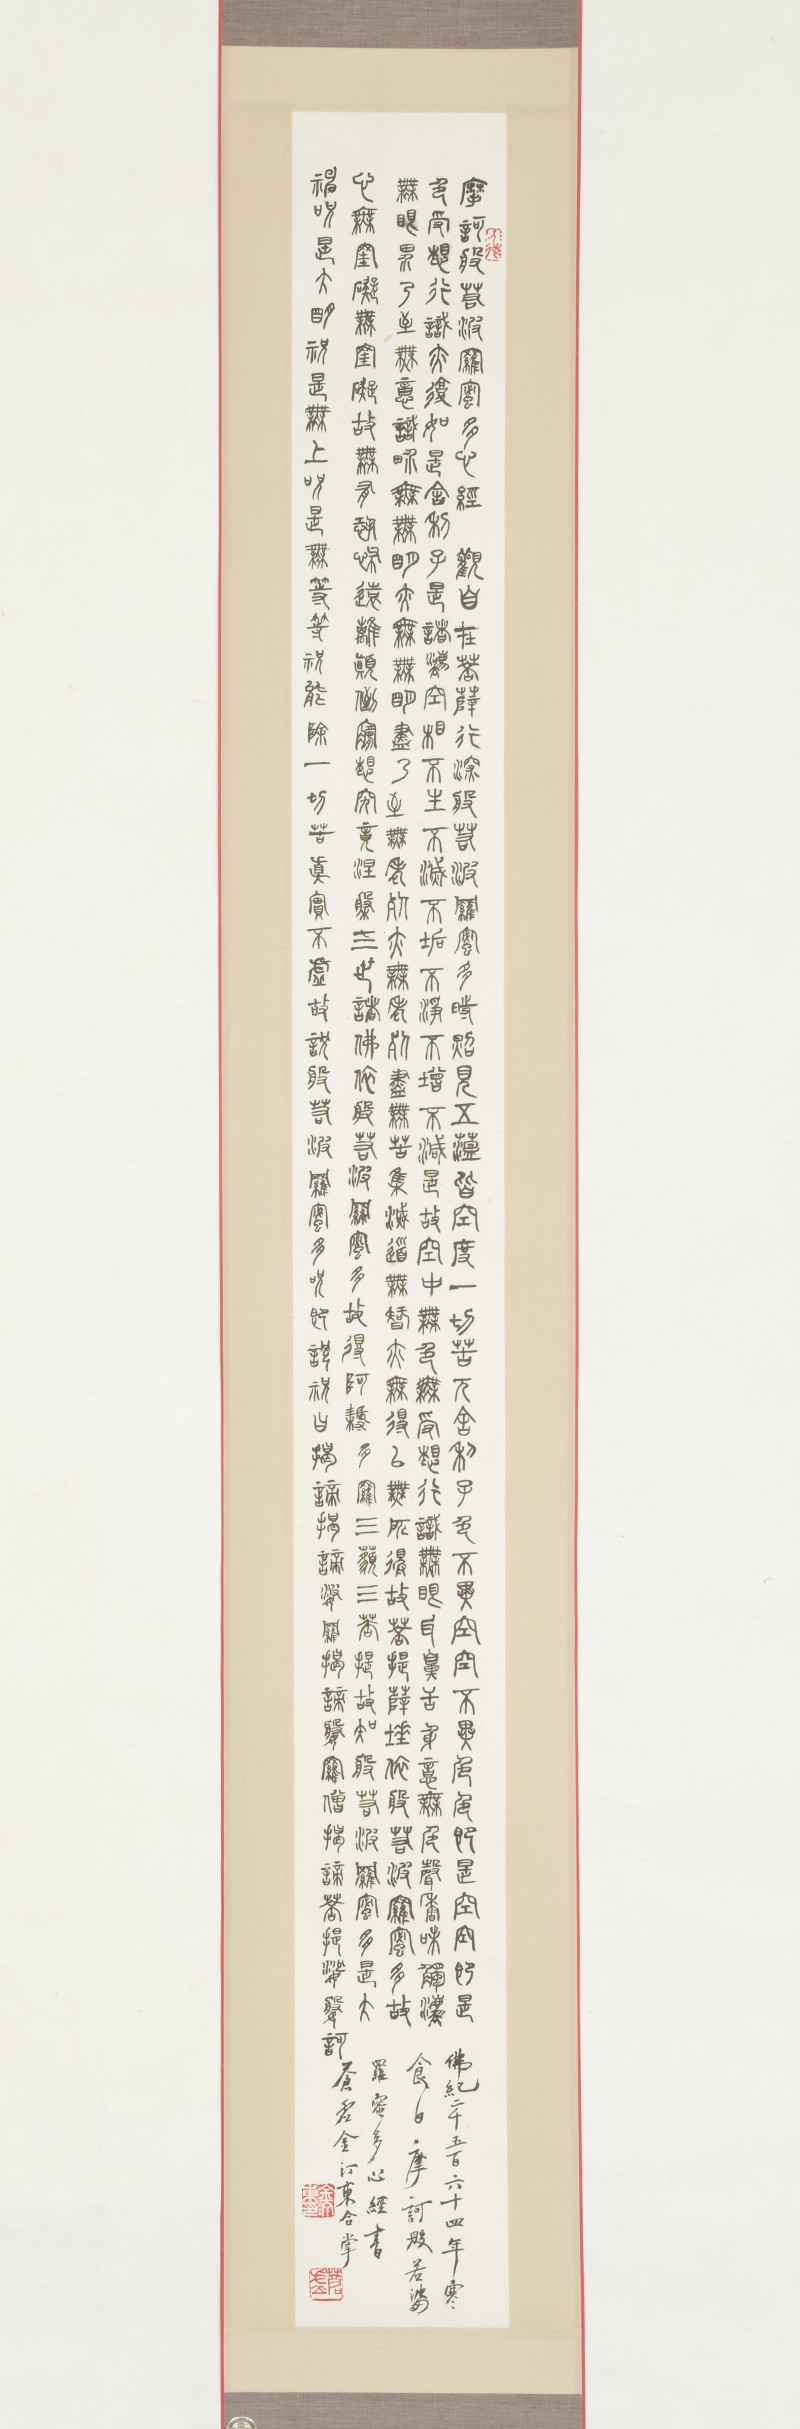 摩訶般若波羅蜜多心經 觀自在菩薩行深般若波羅蜜多時照見五蘊皆空度一切苦厄舍利子色不異空空不異色色即是空空即是
色受想行識亦復如是舍利子是諸法空相不生不滅不垢不淨不增不減是故空中無色無受想行識無眼耳鼻舌身意無色聲香味觸法
無眼界乃至無意識界無無明亦無無明盡乃至無老死亦無老死盡無苦集滅道無智亦無得以無所得故菩提薩埵依般若波羅蜜多故
心無罣礙無罣礙故無有恐怖遠離顛倒夢想究竟涅槃三世諸佛依般若波羅蜜多故得阿耨多羅三藐三菩提故知般若波羅蜜多是大
神呪是大明呪是無上呪是無等等呪能除一切苦真實不虛故說般若波羅蜜多呪即說呪曰揭諦揭諦波羅揭諦波羅僧揭諦菩提娑婆訶
佛紀二千五百六十四年寒
食日摩訶般若婆
羅密多心經書
蒼 金江東合掌